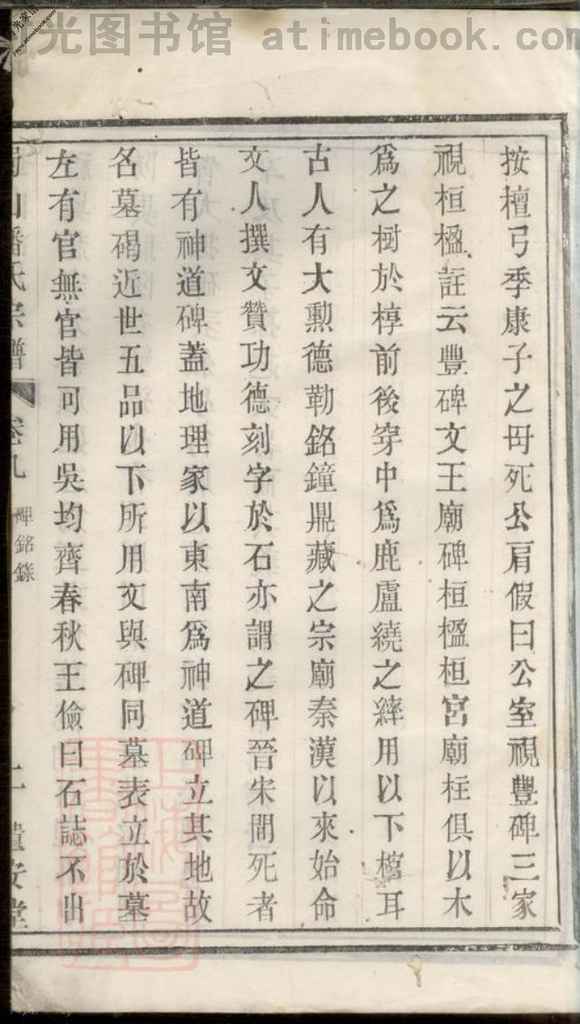 光图书馆 atimebook.com
按檀弓季康子之母死公肩假曰公室視豐碑三家
視桓楹註云豐碑文王廟碑桓楹桓宮廟柱俱以木
爲之樹於椁前後穿中爲鹿盧繞之繂用以下棺耳
古人有大勲德勒銘鐘鼎藏之宗廟秦漢以來始命
文人撰文贊功德刻字於石亦謂之碑晉宋間死者
皆有神道碑蓋地理家以東南爲神道碑立其地故
名墓碣近世五品以下所用文與碑同墓表立於墓
左有官無官皆可用吳均齊春秋王儉曰石誌不出
山潘氏宗譜 卷九 碑銘錄